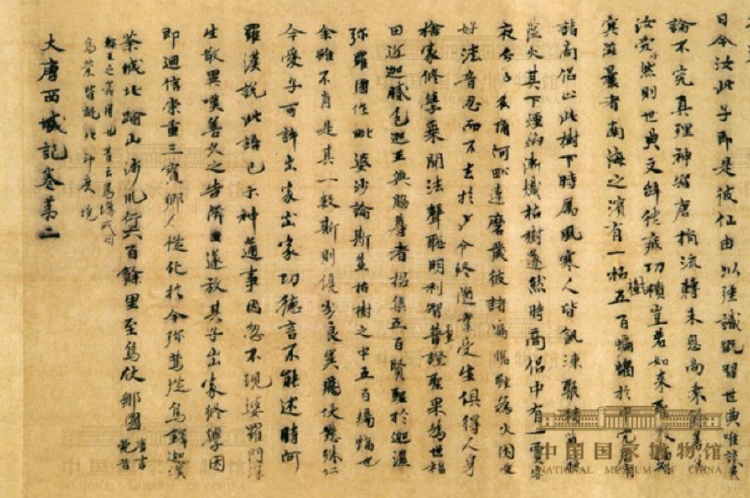 日今汝此子即是彼仙由以強識翫習世典唯談異
論不究真理神智唐捐流轉未息尚乘餘善為
汝然則世典文辞徒疲功積豈若如来聖
冥滋曩者南海之濱有一枯樹五百蝙蝠於中穴居有
諸商侶止此樹下時属風寒人皆飢凍聚積
薀火其下煙焰漸熾枯樹遂然時商侶中有一賈客
夜分已後誦阿毗達磨藏彼諸蝙蝠雖為火困愛
好法音忍而不去於夕命終随業受生俱得人身
捨家修學乘聞法聲聡明利智並證聖果為世福
田近迦膩色迦王與脇尊者招集五百賢聖於迦濕
弥羅國作毗婆沙論斯並枯樹之中五百蝙蝠也
余雖不肖是其一數斯則優劣良異飛伏懸殊仁
今愛子可許出家出家功德言不能述時阿
羅漢說此語已示神通事因忽不現婆羅門深
生敬異嘆善久之告隣里遂放其子出家修學因
即迴信崇重三寳鄉人從化於今弥篤從烏鐸迦漢
荼城北踰山涉川行六百餘里至烏仗那國 唐言苑昔
輪王之苑囿也舊云烏場或曰
烏荼皆訛北印度境
大唐西域記卷第二
中国国家博物馆
NATIONAL MUSEUM OF CHINA